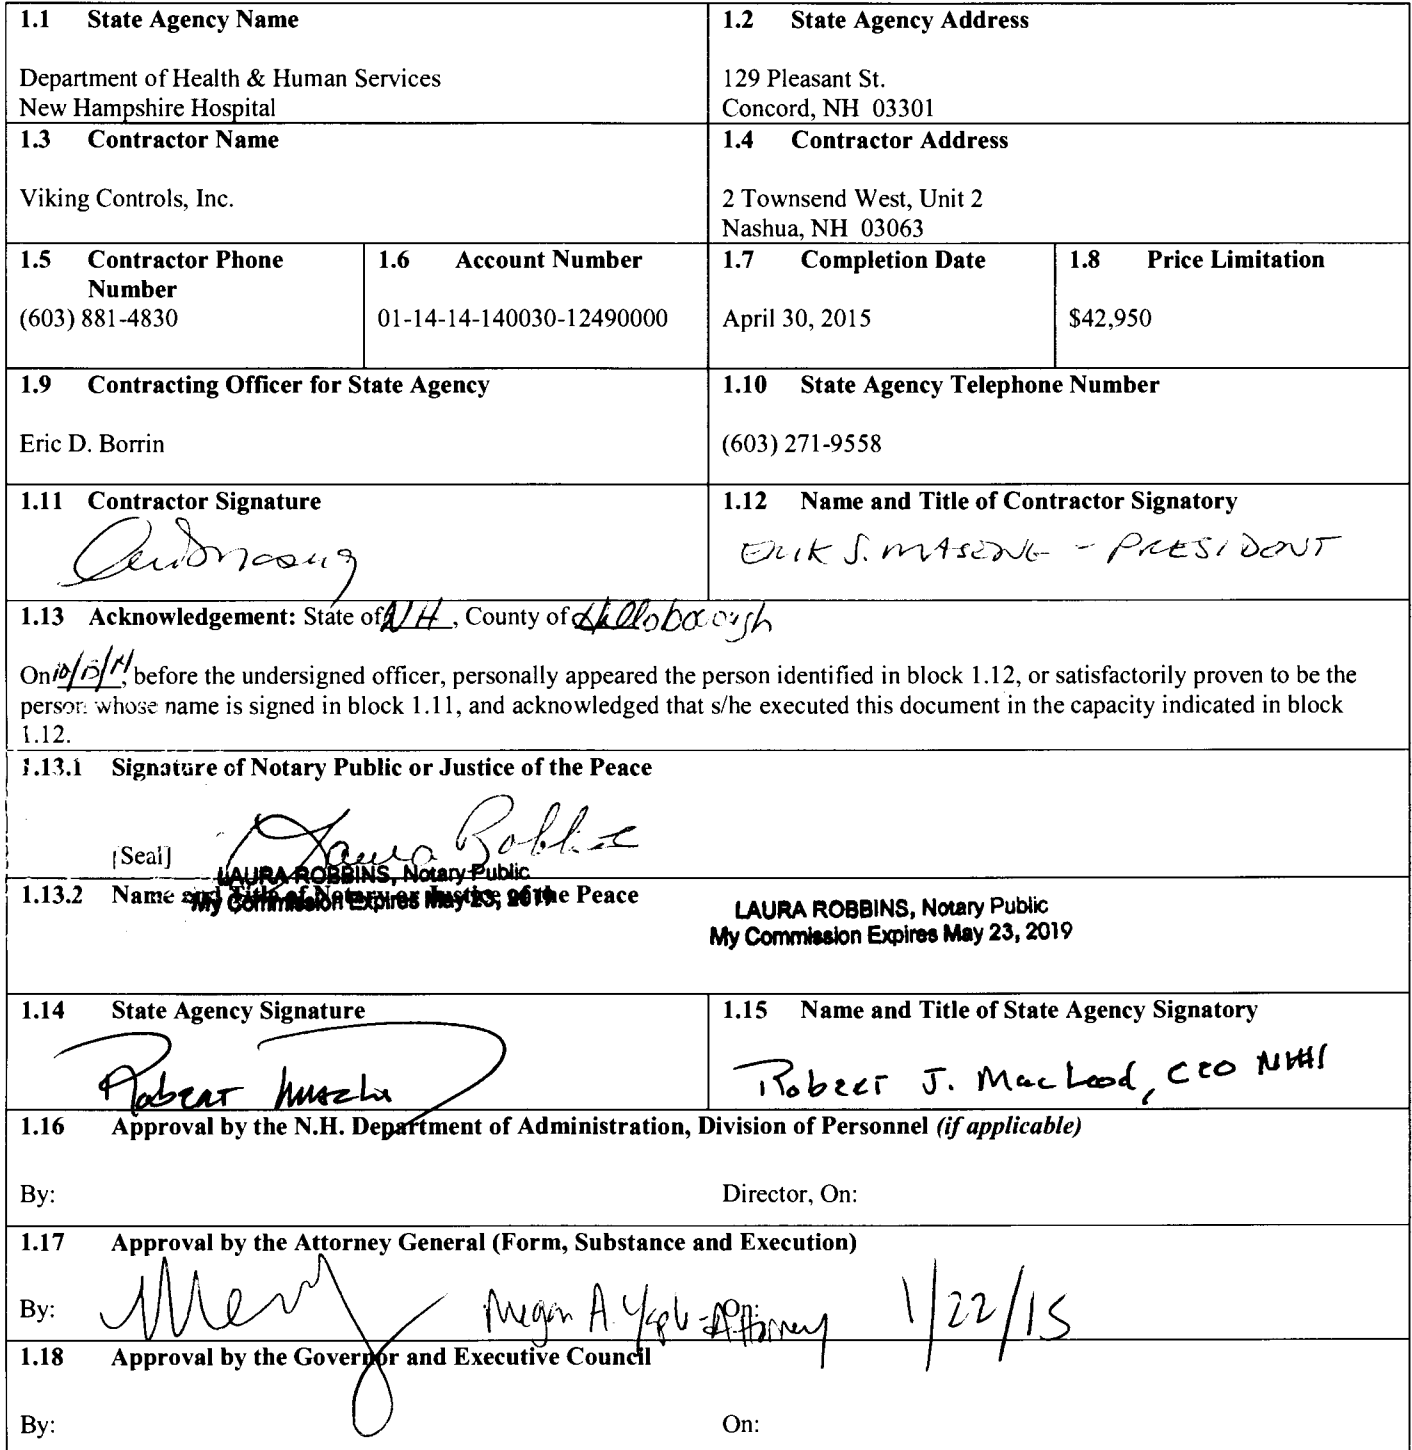 1.1 State Agency Name
1.2 State Agency Address
Department of Health & Human Services
New Hampshire Hospital
129 Pleasant St.
Concord, NH 03301
1.3 Contractor Name
1.4 Contractor Address
Viking Controls, Inc.
2 Townsend West, Unit 2
Nashua, NH 03063
1.5 Contractor Phone
Number
(603) 881-4830
1.6 Account Number
01-14-14-140030-12490000
1.7 Completion Date
April 30, 2015
1.8 Price Limitation
$42,950
1.9 Contracting Officer for State Agency
Eric D. Borrin
1.10 State Agency Telephone Number
(603) 271-9558
1.11 Contractor Signature
1.12 Name and Title of Contractor Signatory
ERIK S. - PRESIDENT
1.13 Acknowledgement: State of NH, County of Hillsborough
On , before the undersigned officer, personally appeared the person identified in block 1.12, or satisfactorily proven to be the
person whose name is signed in block 1.11, and acknowledged that s/he executed this document in the capacity indicated in block
1.12.
1.13.1 Signature of Notary Public or Justice of the Peace
Laura Robbins
[Seal]
LAURA ROBBINS, Notary Public
My Commission Expires May 23, 2019
1.13.2 Name and Title of Notary or Justice of the Peace
LAURA ROBBINS, Notary Public
My Commission Expires May 23, 2019
1.14 State Agency Signature
Robert
1.15 Name and Title of State Agency Signatory
Robert J. MacLeod, CEO NHH
1.16 Approval by the N.H. Department of Administration, Division of Personnel (if applicable)
By:
Director, On:
1.17 Approval by the Attorney General (Form, Substance and Execution)
By: Megan A. - Attorney On: 1/22/15
1.18 Approval by the Governor and Executive Council
By:
On: